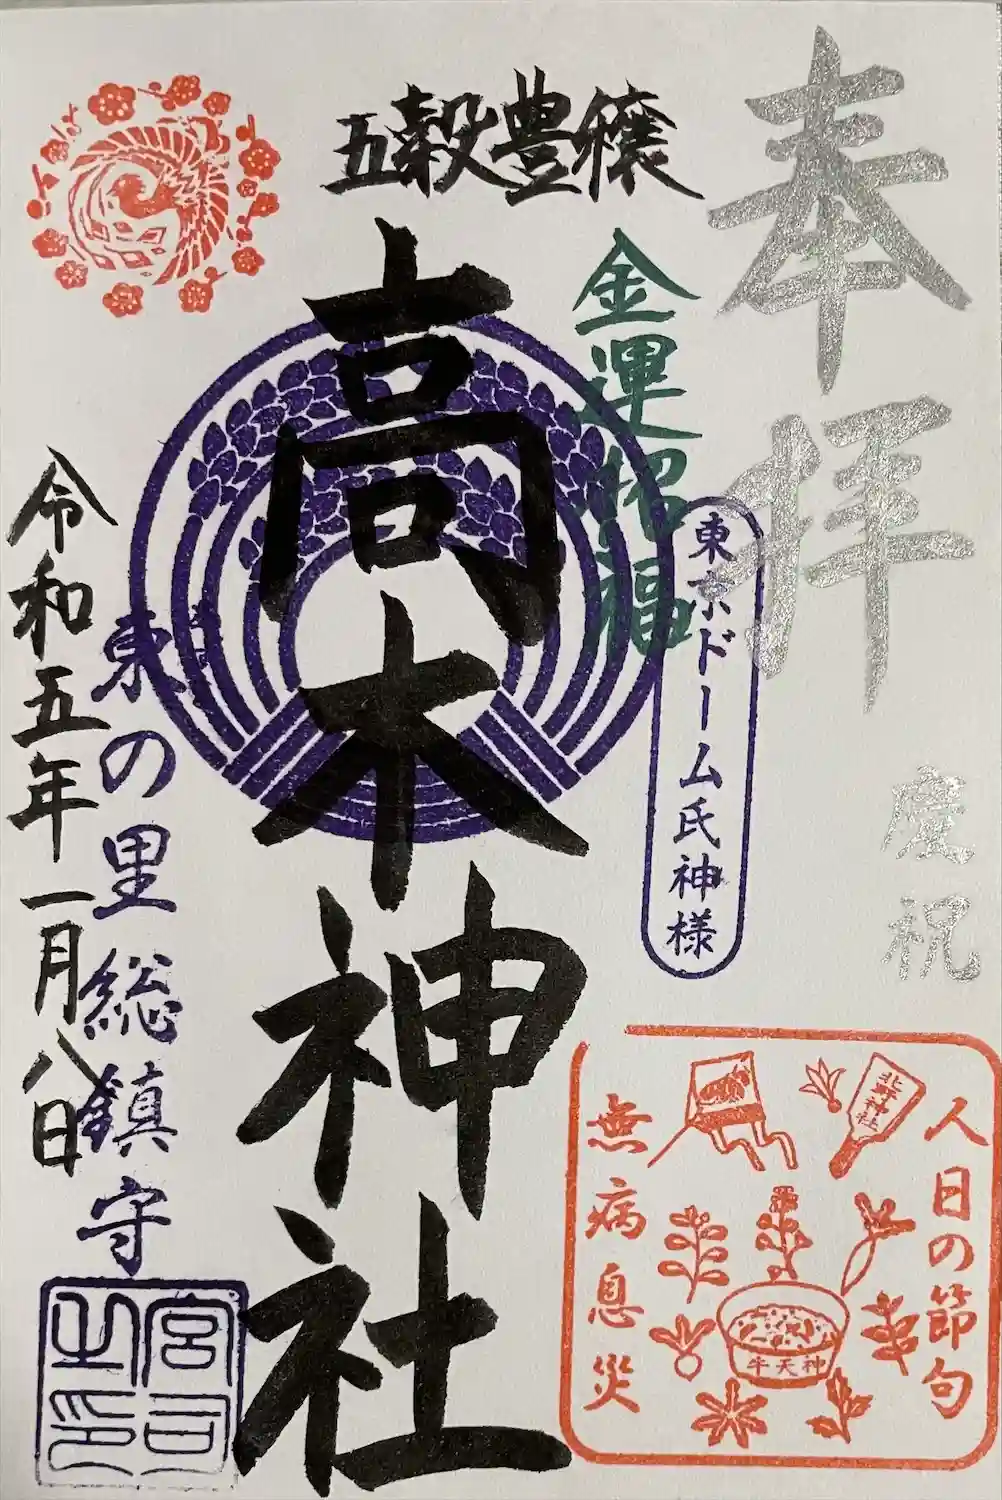 奉拝
慶祝
五穀豊穣
金運招福
東京ドーム氏神様
高木神社
東の里総鎮守
令和五年一月八日
宮司之印
人日の節句
無病息災
北野神社
牛天神